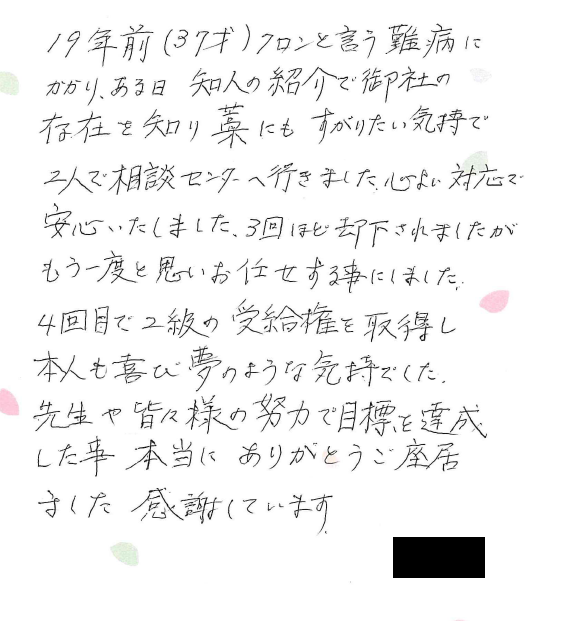 19年前(37才)クロンと言う難病に
かかり、ある日 知人の紹介で御社の
存在を知り藁にもすがりたい気持で
2人で相談センターへ行きました。心よい対応で
安心いたしました、3回ほど却下されましたが
もう一度と思いお任せする事にしました。
4回目で2級の受給権を取得し
本人も喜び夢のような気持でした。
先生や皆々様の努力で目標を達成
した事 本当に ありがとうご座居
ました 感謝しています。